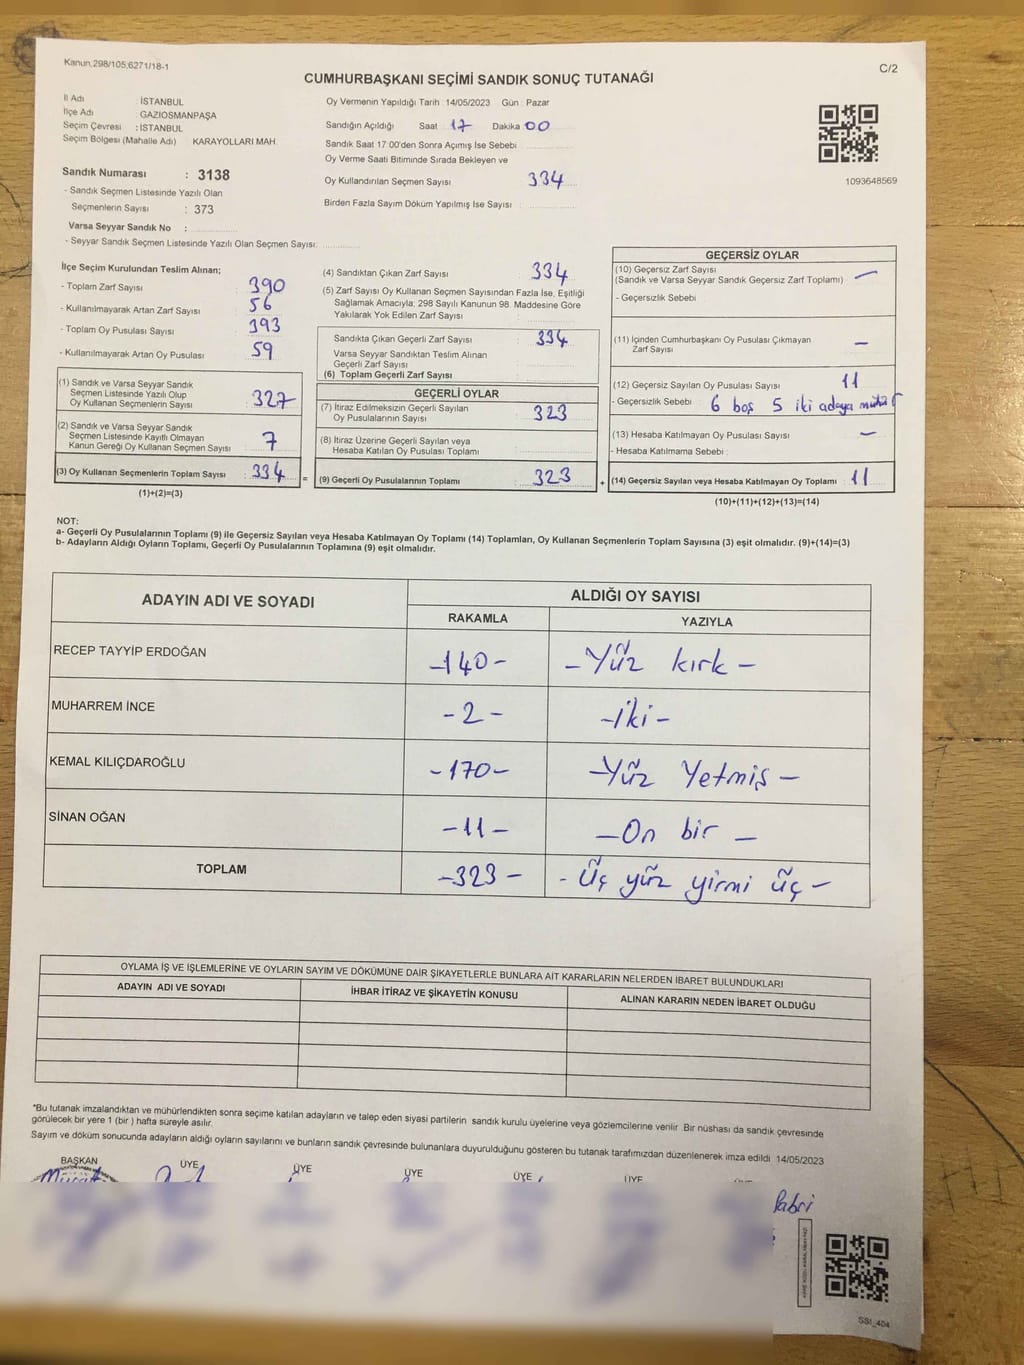 Kanun,298/105,6271/18-1
C/2
CUMHURBAŞKANI SEÇİMİ SANDIK SONUÇ TUTANAĞI
İl Adı İSTANBUL
İlçe Adı GAZİOSMANPAŞA
Seçim Çevresi : İSTANBUL
Seçim Bölgesi (Mahalle Adı) KARAYOLLARI MAH.
Sandık Numarası : 3138
- Sandık Seçmen Listesinde Yazılı Olan
Seçmenlerin Sayısı : 373
Varsa Seyyar Sandık No :
- Seyyar Sandık Seçmen Listesinde Yazılı Olan Seçmen Sayısı:
Oy Vermenin Yapıldığı Tarih 14/05/2023 Gün : Pazar
Sandığın Açıldığı Saat 17 Dakika 00
Sandık Saat 17 00'den Sonra Açımış İse Sebebi
Oy Verme Saati Bitiminde Sırada Bekleyen ve
Oy Kullandırılan Seçmen Sayısı 334
Birden Fazla Sayım Döküm Yapılmış İse Sayısı :
1093648569
İlçe Seçim Kurulundan Teslim Alınan;
- Toplam Zarf Sayısı : 390
- Kullanılmayarak Artan Zarf Sayısı : 56
- Toplam Oy Pusulası Sayısı : 393
- Kullanılmayarak Artan Oy Pusulası : 59
(1) Sandık ve Varsa Seyyar Sandık
Seçmen Listesinde Yazılı Olup
Oy Kullanan Seçmenlerin Sayısı : 327
(2) Sandık ve Varsa Seyyar Sandık
Seçmen Listesinde Kayıtlı Olmayan
Kanun Gereği Oy Kullanan Seçmen Sayısı : 7
(3) Oy Kullanan Seçmenlerin Toplam Sayısı : 334 =
(1)+(2)=(3)
(4) Sandıktan Çıkan Zarf Sayısı : 334
(5) Zarf Sayısı Oy Kullanan Seçmen Sayısından Fazla İse, Eşitliği
Sağlamak Amacıyla; 298 Sayılı Kanunun 98. Maddesine Göre
Yakılarak Yok Edilen Zarf Sayısı
Sandıkta Çıkan Geçerli Zarf Sayısı : 334
Varsa Seyyar Sandıktan Teslim Alınan
Geçerli Zarf Sayısı
(6) Toplam Geçerli Zarf Sayısı
GEÇERLİ OYLAR
(7) İtiraz Edilmeksizin Geçerli Sayılan
Oy Pusulalarının Sayısı : 323
(8) İtiraz Üzerine Geçerli Sayılan veya
Hesaba Katılan Oy Pusulası Toplamı
(9) Geçerli Oy Pusulalarının Toplamı : 323 +
GEÇERSİZ OYLAR
(10) Geçersiz Zarf Sayısı
(Sandık ve Varsa Seyyar Sandık Geçersiz Zarf Toplamı) : —
- Geçersizlik Sebebi
(11) İçinden Cumhurbaşkanı Oy Pusulası Çıkmayan
Zarf Sayısı —
(12) Geçersiz Sayılan Oy Pusulası Sayısı : 11
- Geçersizlik Sebebi : 6 boş 5 iki adaya mühür
(13) Hesaba Katılmayan Oy Pusulası Sayısı : —
- Hesaba Katılmama Sebebi :
(14) Geçersiz Sayılan veya Hesaba Katılmayan Oy Toplamı : 11
(10)+(11)+(12)+(13)=(14)
NOT:
a- Geçerli Oy Pusulalarının Toplamı (9) ile Geçersiz Sayılan veya Hesaba Katılmayan Oy Toplamı (14) Toplamları, Oy Kullanan Seçmenlerin Toplam Sayısına (3) eşit olmalıdır. (9)+(14)=(3)
b- Adayların Aldığı Oyların Toplamı, Geçerli Oy Pusulalarının Toplamına (9) eşit olmalıdır.
ADAYIN ADI VE SOYADI ALDIĞI OY SAYISI
RAKAMLA YAZIYLA
RECEP TAYYİP ERDOĞAN -140- -Yüz kırk-
MUHARREM İNCE -2- -iki-
KEMAL KILIÇDAROĞLU -170- -Yüz Yetmiş-
SİNAN OĞAN -11- -On bir-
TOPLAM -323- -Üç yüz yirmi üç-
OYLAMA İŞ VE İŞLEMLERİNE VE OYLARIN SAYIM VE DÖKÜMÜNE DAİR ŞİKAYETLERLE BUNLARA AİT KARARLARIN NELERDEN İBARET BULUNDUKLARI
ADAYIN ADI VE SOYADI İHBAR İTİRAZ VE ŞİKAYETİN KONUSU ALINAN KARARIN NEDEN İBARET OLDUĞU
*Bu tutanak imzalandıktan ve mühürlendikten sonra seçime katılan adayların ve talep eden siyasi partilerin sandık kurulu üyelerine veya gözlemcilerine verilir. Bir nüshası da sandık çevresinde
görülecek bir yere 1 (bir ) hafta süreyle asılır.
Sayım ve döküm sonucunda adayların aldığı oyların sayılarını ve bunların sandık çevresinde bulunanlara duyurulduğunu gösteren bu tutanak tarafımızdan düzenlenerek imza edildi 14/05/2023
BAŞKAN ÜYE ÜYE ÜYE ÜYE ÜYE
SSI_404